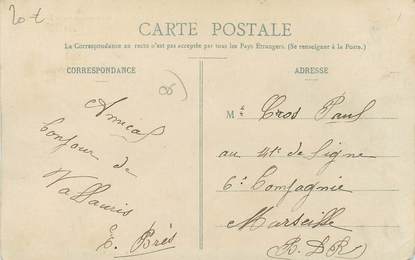 20 t
CARTE POSTALE
La Correspondance au recto n'est pas acceptée par tous les Pays Étrangers. (Se renseigner à la Poste.)
CORRESPONDANCE
ADRESSE
06
Amical
bonjour de
Vallauris
E. Brès
Mr Cros Paul
au 41e de Ligne
6e Compagnie
Marseille
(B. D. R)